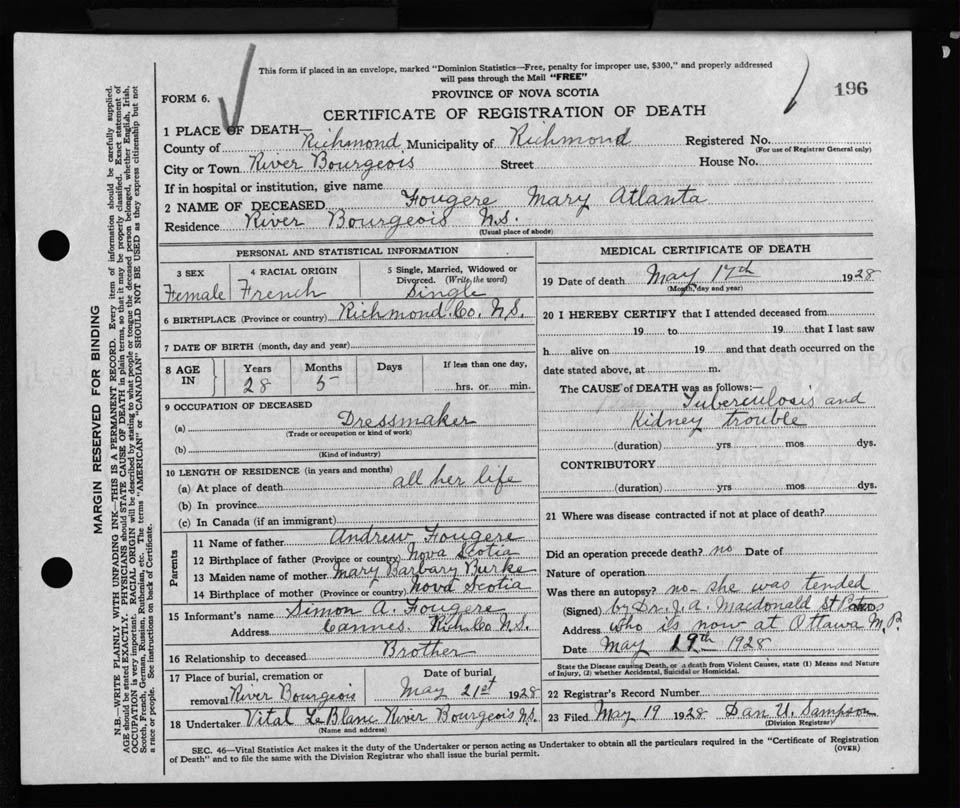 This form if placed in an envelope, marked "Dominion Statistics—Free, penalty for improper use, $300," and properly addressed
will pass through the Mail "FREE"
196
FORM 6.
PROVINCE OF NOVA SCOTIA
CERTIFICATE OF REGISTRATION OF DEATH
1 PLACE OF DEATH—
County of Richmond Municipality of Richmond Registered No.
(For use of Registrar General only)
City or Town River Bourgeois Street House No.
If in hospital or institution, give name
2 NAME OF DECEASED Fougere Mary Atlanta
Residence River Bourgeois N.S.
(Usual place of abode)
PERSONAL AND STATISTICAL INFORMATION
3 SEX 4 RACIAL ORIGIN 5 Single, Married, Widowed or
Divorced. (Write the word)
Female French Single
6 BIRTHPLACE (Province or country) Richmond Co. N.S.
7 DATE OF BIRTH (month, day and year)
8 AGE IN Years Months Days If less than one day,
28 5 hrs. or min.
9 OCCUPATION OF DECEASED
(a) Dressmaker
(Trade or occupation or kind of work)
(b)
(Kind of industry)
10 LENGTH OF RESIDENCE (in years and months)
(a) At place of death all her life
(b) In province
(c) In Canada (if an immigrant)
Parents
11 Name of father Andrew Fougere
12 Birthplace of father (Province or country) Nova Scotia
13 Maiden name of mother Mary Barbary Burke
14 Birthplace of mother (Province or country) Nova Scotia
15 Informant's name Simon A. Fougere
Address Cannes. Rich. Co N.S.
16 Relationship to deceased Brother
17 Place of burial, cremation or Date of burial
removal River Bourgeois May 21st 1928
18 Undertaker Vital LeBlanc River Bourgeois N.S.
(Name and address)
MEDICAL CERTIFICATE OF DEATH
19 Date of death May 17th 1928
(Month, day and year)
20 I HEREBY CERTIFY that I attended deceased from
19 to 19 that I last saw
h alive on 19 and that death occurred on the
date stated above, at m.
The CAUSE OF DEATH was as follows:—
Tuberculosis and
Kidney trouble
(duration) yrs mos dys.
CONTRIBUTORY
(duration) yrs mos dys.
21 Where was disease contracted if not at place of death?
Did an operation precede death? no Date of
Nature of operation
Was there an autopsy? no – she was tended
(Signed) by Dr. J. A. Macdonald St Peters
Address who is now at Ottawa M.P.
Date May 19th 1928
State the Disease causing Death, or a death from Violent Causes, state (1) Means and Nature
of Injury, (2) whether Accidental, Suicidal or Homicidal.
22 Registrar's Record Number
23 Filed May 19 1928 Dan U. Sampson
(Division Registrar)
SEC. 46—Vital Statistics Act makes it the duty of the Undertaker or person acting as Undertaker to obtain all the particulars required in the "Certificate of Registration
of Death" and to file the same with the Division Registrar who shall issue the burial permit. (OVER)
MARGIN RESERVED FOR BINDING
N.B.—WRITE PLAINLY WITH UNFADING INK—THIS IS A PERMANENT RECORD. Every item of information should be carefully supplied.
AGE should be stated EXACTLY. PHYSICIANS should STATE CAUSE OF DEATH in plain terms, so that it may be properly classified. Exact statement of
OCCUPATION is very important. RACIAL ORIGIN will be described by stating to what people or tongue the deceased person belonged, whether English, Irish,
Scotch, French, German, Russian, Ruthenian, etc. The terms "AMERICAN" or "CANADIAN" SHOULD NOT BE USED as they express citizenship but not
a race or people. See instructions on back of Certificate.